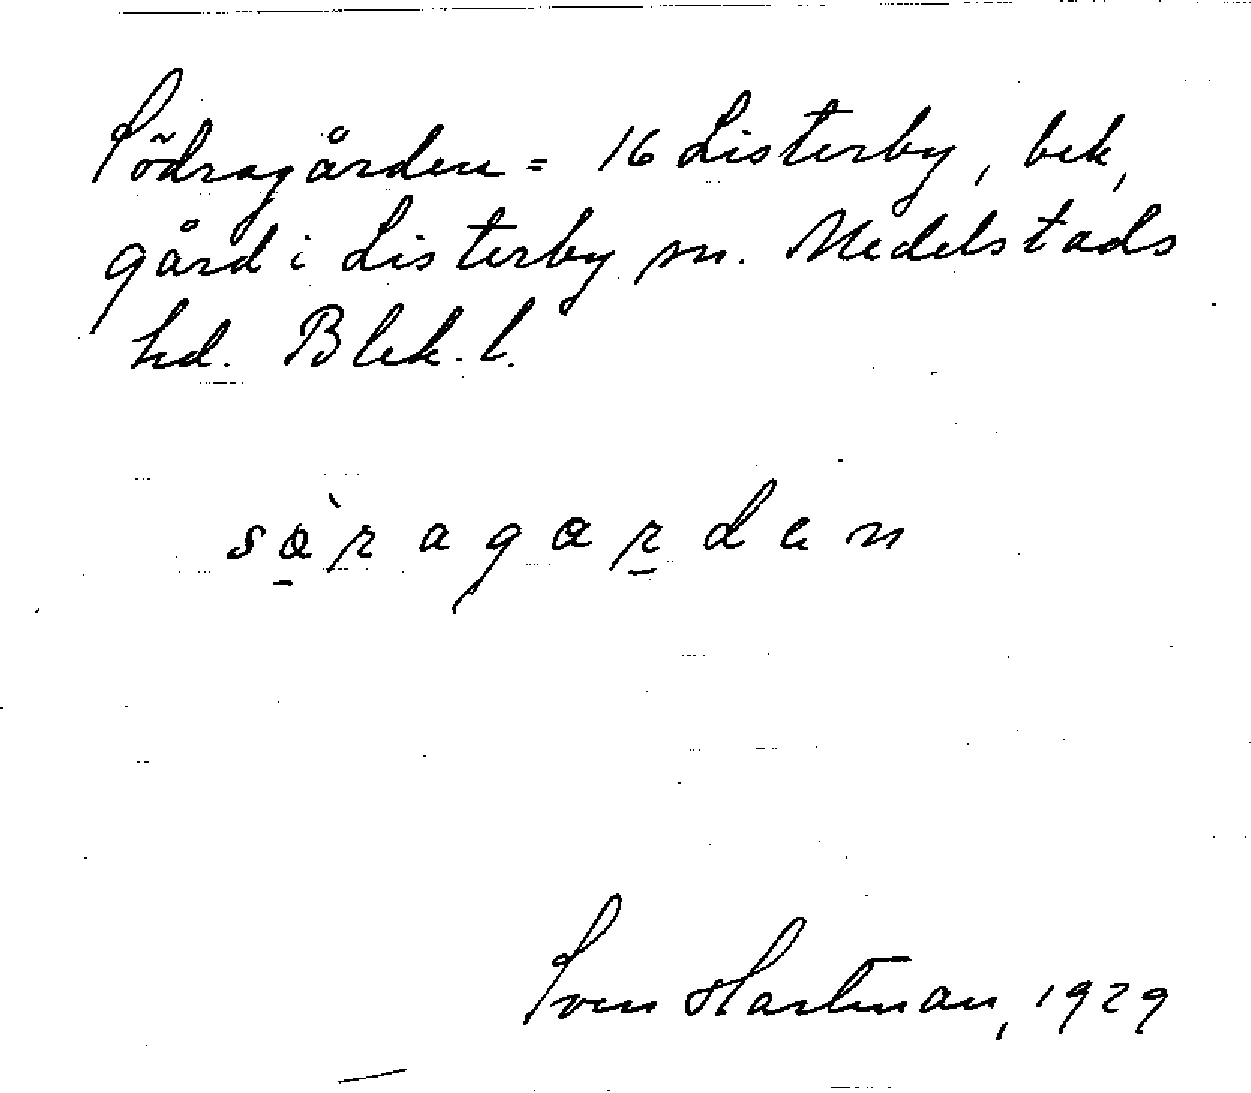 Södragården = 16 Listerby, bek,
gård i Listerby sn. Medelstads
hd. Blek. l.
Sven Hartman, 1929